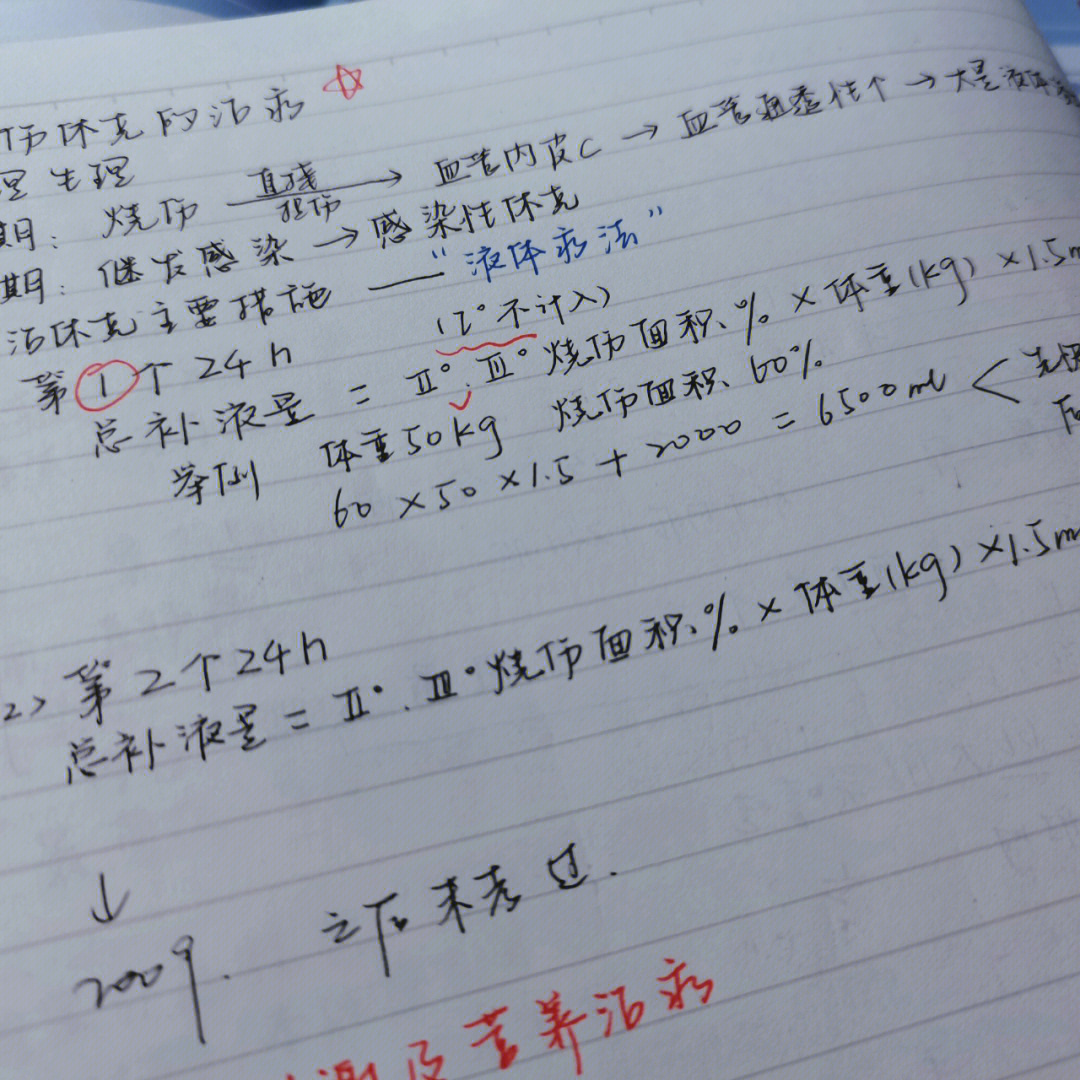 伤休克的治疗 ☆
理生理
期: 烧伤 直接损伤 → 血管内皮C → 血管通透性↑ → 大量液体
期: 继发感染 → 感染性休克
治休克主要措施 — “液体疗法”
第①个24h (I°不计入)
总补液量 = II°.III°烧伤面积.% × 体重(kg) × 1.5m
举例 体重50kg 烧伤面积.60%
60 × 50 × 1.5 + 2000 = 6500ml <
2> 第2个24h
总补液量 = II°.III°烧伤面积.% × 体重(kg) × 1.5m
↓
2009. 之后未考过.
谢及营养治疗